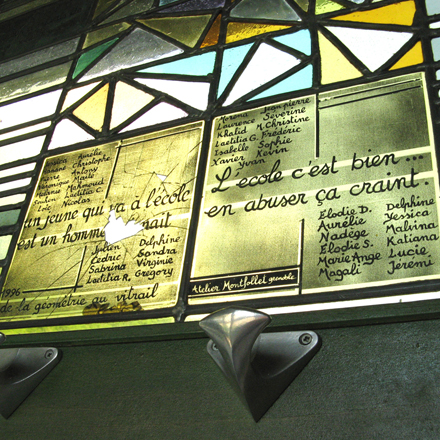 Aurélie
Christophe
Antony
Mahmoud
Laetitia C.
Nicolas
Loïc
un jeune qui va à l'école
est un homme
Julien Delphine
Cédric Sandra
Sabrina Virginie
Laetitia R. Grégory
1996
de la géométrie au vitrail
Morena Jean pierre
Laurence Séverine
Khalid M. Christine
Laetitia G. Frédéric
Isabelle Sophie
Xavier Kevin
Yvan
L'école c'est bien...
en abuser ça craint.
Elodie D. Delphine
Aurélie Yessica
Nadège Malvina
Elodie S. Katiana
Marie Ange Lucie
Magali Jeremi
Atelier Montfollet grenoble